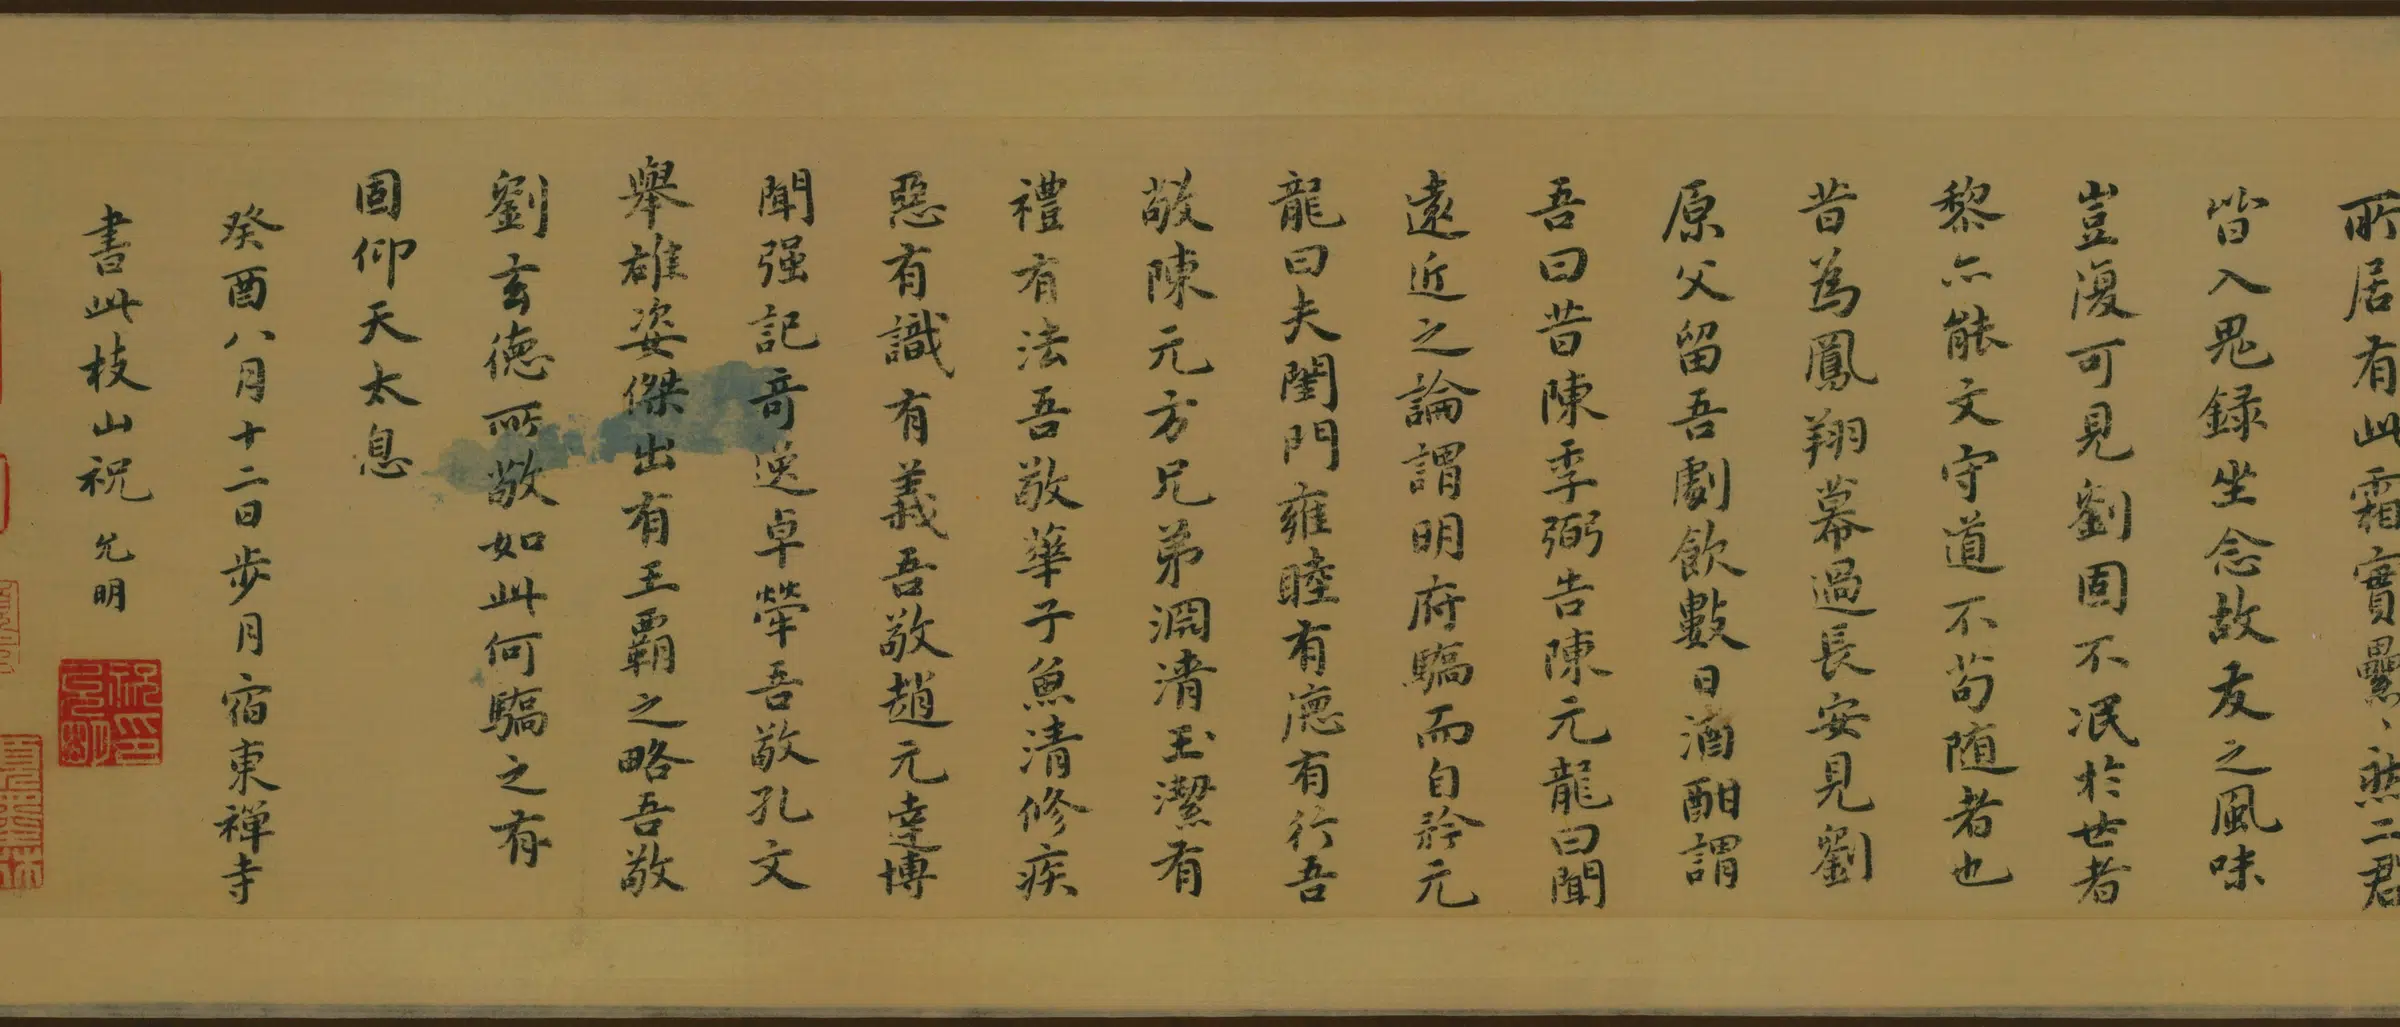 所居有此霜實纍〻然二君
皆入鬼録坐念故友之風味
豈復可見劉固不泯於世者
黎亦能文守道不苟随者也
昔為鳳翔幕過長安見劉
原父留吾劇飲數日酒酣謂
吾曰昔陳季弼告陳元龍曰聞
遠近之論謂明府驕而自矜元
龍曰夫閨門雍睦有德有行吾
敬陳元方兄弟淵清玉潔有
禮有法吾敬華子魚清修疾
惡有識有義吾敬趙元達博
聞强記奇逸卓犖吾敬孔文
舉雄姿傑出有王霸之略吾敬
劉玄德所敬如此何驕之有
固仰天太息
癸酉八月十二日步月宿東禪寺
書此枝山祝允明
祝印允明